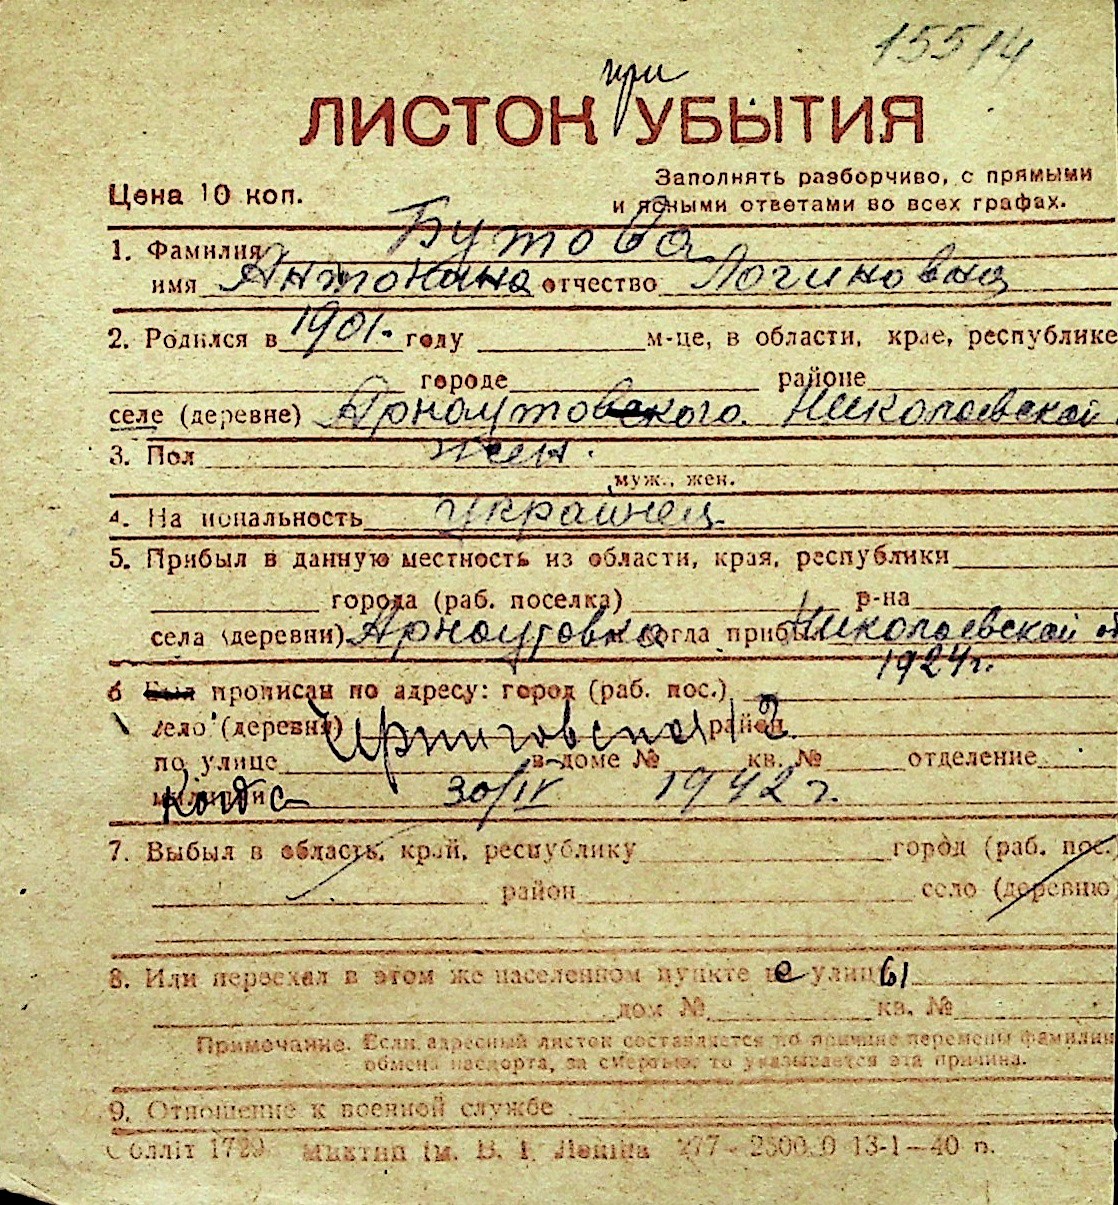 15514
при
ЛИСТОК УБЫТИЯ
Цена 10 коп.
Заполнять разборчиво, с прямыми
и ясными ответами во всех графах.
1. Фамилия Бутова
имя Антонина отчество Логиновна
2. Родился в 1901. году м-це, в области, крае, республике
городе районе
селе (деревне) Арноутовского Николаевской
3. Пол жен.
муж., жен.
4. На иональность украинец
5. Прибыл в данную местность из области, края, республики
города (раб. поселка) р-на
села (деревни) Арноутовка когда прибыл Николаевской об
1924 г.
6 Был прописан по адресу: город (раб. пос.)
село (деревня) Черниговская 12 район
по улице в доме № кв. № отделение
милиции Когда 30/IV 1942 г.
7. Выбыл в область, край, республику город (раб. пос.)
район село (деревню
8. Или переехал в этом же населенном пункте с улицы
дом № кв. №
Примечание. Если адресный листок составляется по причине перемены фамилии
обмена паспорта, за смертью, то указывается эта причина.
9. Отношение к военной службе
Облліт 1729 Миктип ім. В. І. Леніна 277 - 2500.0 13-1-40 п.